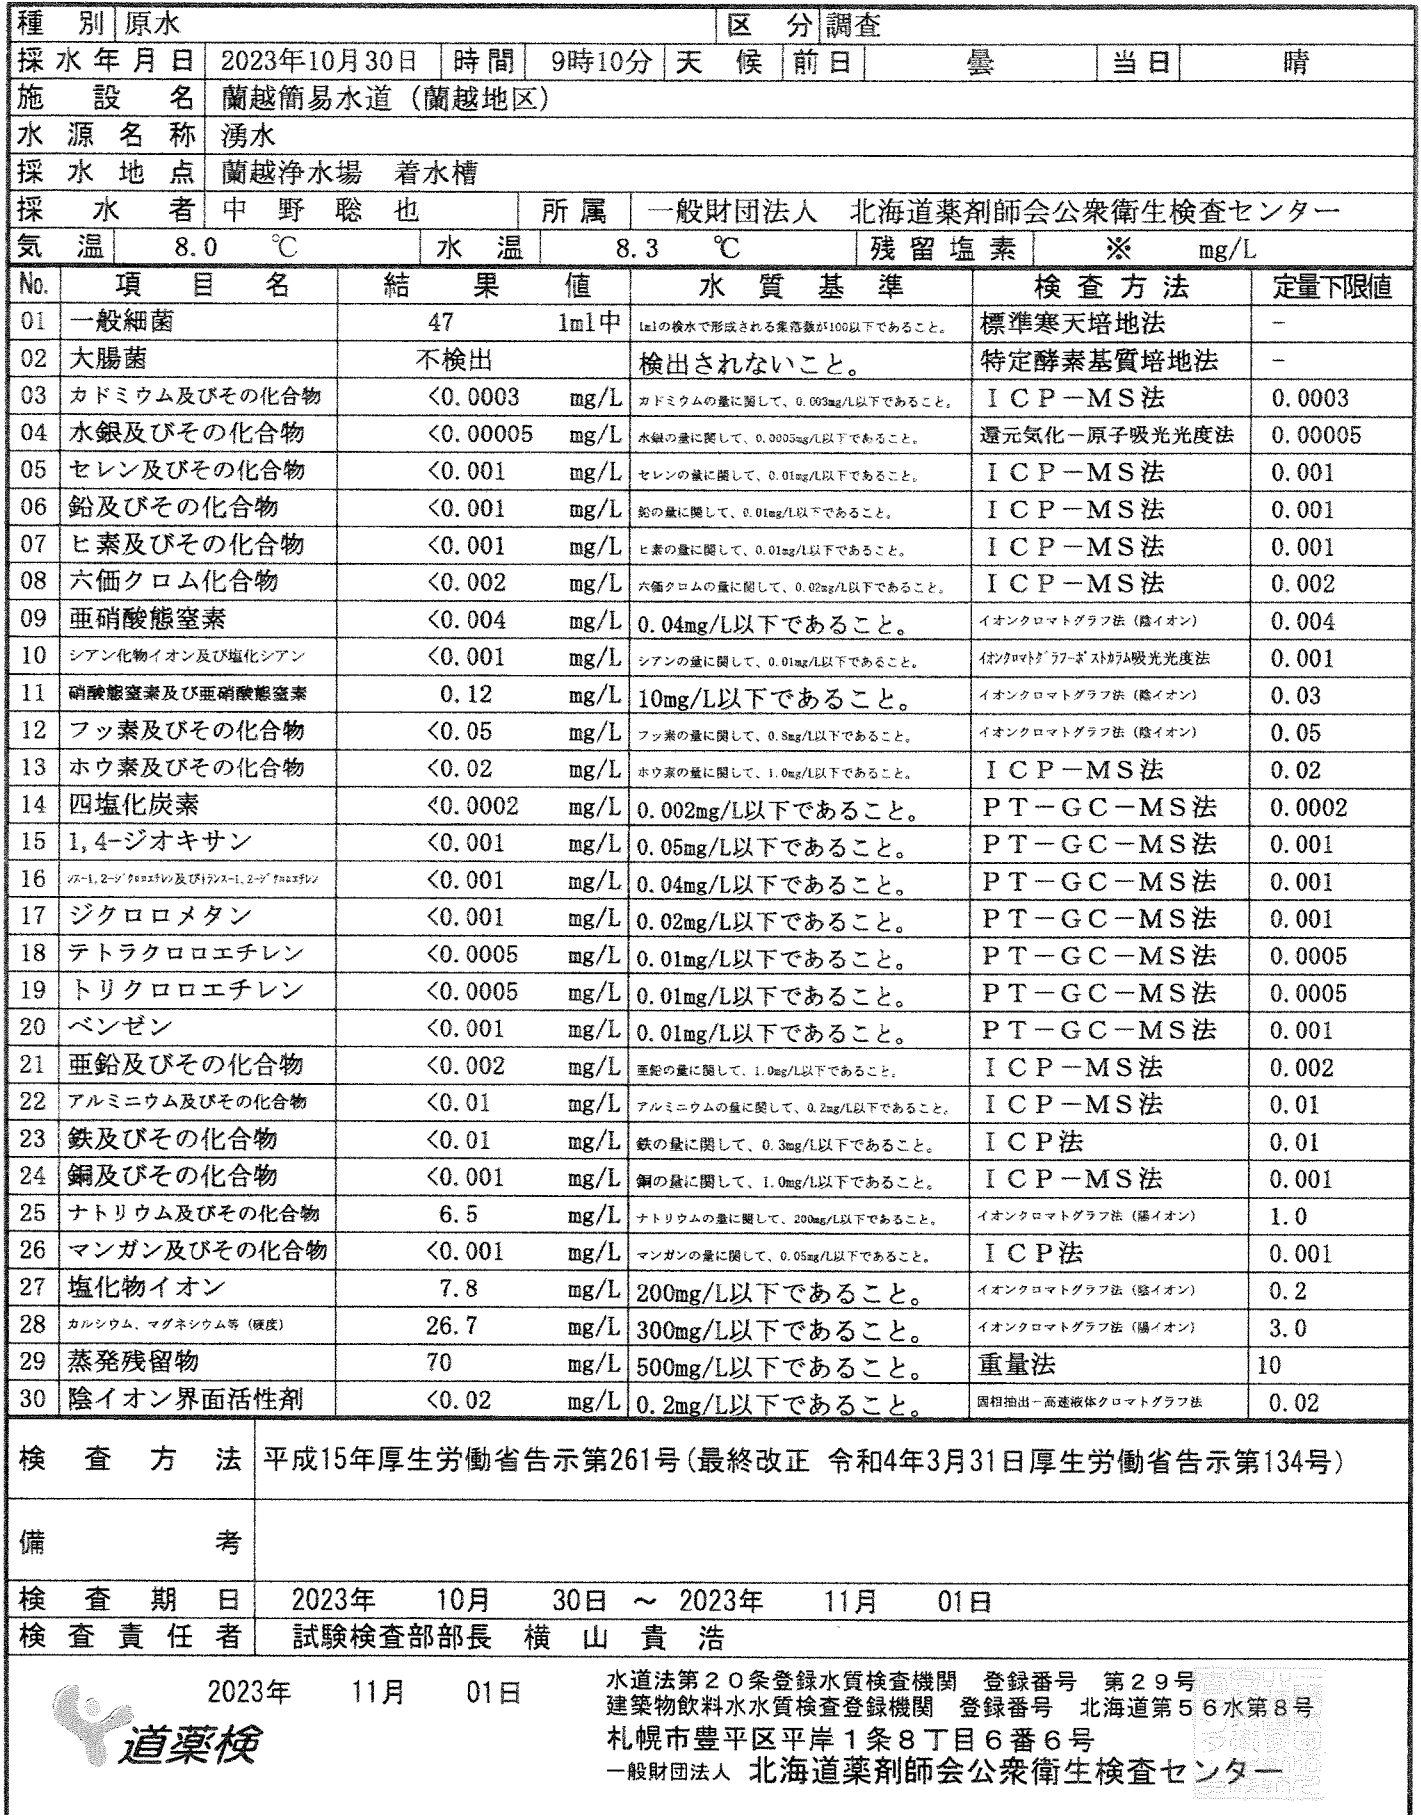 種別 原水 区分 調査
採水年月日 2023年10月30日 時間 9時10分 天候 前日 曇 当日 晴
施設名 蘭越簡易水道（蘭越地区）
水源名称 湧水
採水地点 蘭越浄水場 着水槽
採水者 中野聡也 所属 一般財団法人 北海道薬剤師会公衆衛生検査センター
気温 8.0 ℃ 水温 8.3 ℃ 残留塩素 ※ mg/L
No. 項目名 結果値 水質基準 検査方法 定量下限値
01 一般細菌 47 1ml中 1mlの検水で形成される集落数が100以下であること。 標準寒天培地法 －
02 大腸菌 不検出 検出されないこと。 特定酵素基質培地法 －
03 カドミウム及びその化合物 <0.0003 mg/L カドミウムの量に関して、0.003mg/L以下であること。 ＩＣＰ－ＭＳ法 0.0003
04 水銀及びその化合物 <0.00005 mg/L 水銀の量に関して、0.0005mg/L以下であること。 還元気化－原子吸光光度法 0.00005
05 セレン及びその化合物 <0.001 mg/L セレンの量に関して、0.01mg/L以下であること。 ＩＣＰ－ＭＳ法 0.001
06 鉛及びその化合物 <0.001 mg/L 鉛の量に関して、0.01mg/L以下であること。 ＩＣＰ－ＭＳ法 0.001
07 ヒ素及びその化合物 <0.001 mg/L ヒ素の量に関して、0.01mg/L以下であること。 ＩＣＰ－ＭＳ法 0.001
08 六価クロム化合物 <0.002 mg/L 六価クロムの量に関して、0.02mg/L以下であること。 ＩＣＰ－ＭＳ法 0.002
09 亜硝酸態窒素 <0.004 mg/L 0.04mg/L以下であること。 イオンクロマトグラフ法（陰イオン） 0.004
10 シアン化物イオン及び塩化シアン <0.001 mg/L シアンの量に関して、0.01mg/L以下であること。 ｲｵﾝｸﾛﾏﾄｸﾞﾗﾌｰﾎﾟｽﾄｶﾗﾑ吸光光度法 0.001
11 硝酸態窒素及び亜硝酸態窒素 0.12 mg/L 10mg/L以下であること。 イオンクロマトグラフ法（陰イオン） 0.03
12 フッ素及びその化合物 <0.05 mg/L フッ素の量に関して、0.8mg/L以下であること。 イオンクロマトグラフ法（陰イオン） 0.05
13 ホウ素及びその化合物 <0.02 mg/L ホウ素の量に関して、1.0mg/L以下であること。 ＩＣＰ－ＭＳ法 0.02
14 四塩化炭素 <0.0002 mg/L 0.002mg/L以下であること。 ＰＴ－ＧＣ－ＭＳ法 0.0002
15 1,4-ジオキサン <0.001 mg/L 0.05mg/L以下であること。 ＰＴ－ＧＣ－ＭＳ法 0.001
16 ｼｽ-1,2-ｼﾞｸﾛﾛｴﾁﾚﾝ及びﾄﾗﾝｽ-1,2-ｼﾞｸﾛﾛｴﾁﾚﾝ <0.001 mg/L 0.04mg/L以下であること。 ＰＴ－ＧＣ－ＭＳ法 0.001
17 ジクロロメタン <0.001 mg/L 0.02mg/L以下であること。 ＰＴ－ＧＣ－ＭＳ法 0.001
18 テトラクロロエチレン <0.0005 mg/L 0.01mg/L以下であること。 ＰＴ－ＧＣ－ＭＳ法 0.0005
19 トリクロロエチレン <0.0005 mg/L 0.01mg/L以下であること。 ＰＴ－ＧＣ－ＭＳ法 0.0005
20 ベンゼン <0.001 mg/L 0.01mg/L以下であること。 ＰＴ－ＧＣ－ＭＳ法 0.001
21 亜鉛及びその化合物 <0.002 mg/L 亜鉛の量に関して、1.0mg/L以下であること。 ＩＣＰ－ＭＳ法 0.002
22 アルミニウム及びその化合物 <0.01 mg/L アルミニウムの量に関して、0.2mg/L以下であること。 ＩＣＰ－ＭＳ法 0.01
23 鉄及びその化合物 <0.01 mg/L 鉄の量に関して、0.3mg/L以下であること。 ＩＣＰ法 0.01
24 銅及びその化合物 <0.001 mg/L 銅の量に関して、1.0mg/L以下であること。 ＩＣＰ－ＭＳ法 0.001
25 ナトリウム及びその化合物 6.5 mg/L ナトリウムの量に関して、200mg/L以下であること。 イオンクロマトグラフ法（陽イオン） 1.0
26 マンガン及びその化合物 <0.001 mg/L マンガンの量に関して、0.05mg/L以下であること。 ＩＣＰ法 0.001
27 塩化物イオン 7.8 mg/L 200mg/L以下であること。 イオンクロマトグラフ法（陰イオン） 0.2
28 カルシウム、マグネシウム等（硬度） 26.7 mg/L 300mg/L以下であること。 イオンクロマトグラフ法（陽イオン） 3.0
29 蒸発残留物 70 mg/L 500mg/L以下であること。 重量法 10
30 陰イオン界面活性剤 <0.02 mg/L 0.2mg/L以下であること。 固相抽出－高速液体クロマトグラフ法 0.02
検査方法 平成15年厚生労働省告示第261号(最終改正 令和4年3月31日厚生労働省告示第134号)
備考
検査期日 2023年 10月 30日 ～ 2023年 11月 01日
検査責任者 試験検査部部長 横山貴浩
2023年 11月 01日
道薬検
水道法第２０条登録水質検査機関 登録番号 第２９号
建築物飲料水水質検査登録機関 登録番号 北海道第５６水第８号
札幌市豊平区平岸１条８丁目６番６号
一般財団法人 北海道薬剤師会公衆衛生検査センター